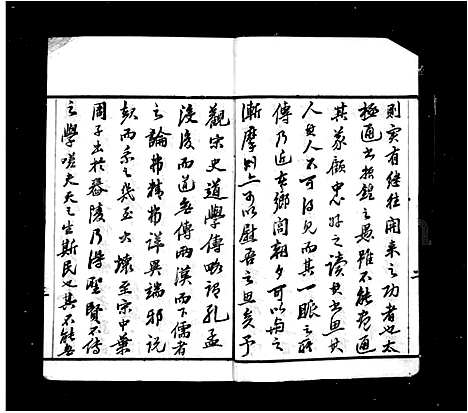 則實有繼往開來之功者也太
極通書抉鍵之愚雖不能尽通
其篆顧忠好之讀其書思其
人其人不可得見而其一脈之
傳乃近在鄉閭朝夕可以與之
漸摩則上可以慰吾之思矣予
觀宋史道學傳略謂孔孟
没後而道無傳兩漢而下儒者
之論弗精弗詳異端邪說
起而乘之幾至大壞至宋中葉
周子出於舂陵乃得聖賢不傳
之學嗟夫天之生斯民也其不能無